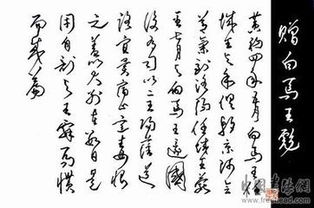 赠白马王彪
黄初四年正月白马王任
城王与余俱朝京师会
节气到洛阳任城王薨
至七月与白马王还國
后有司以二王归藩道
路宜异宿止意毒恨
之盖以大别在数日是
用自剖与王辞焉愤
而成篇